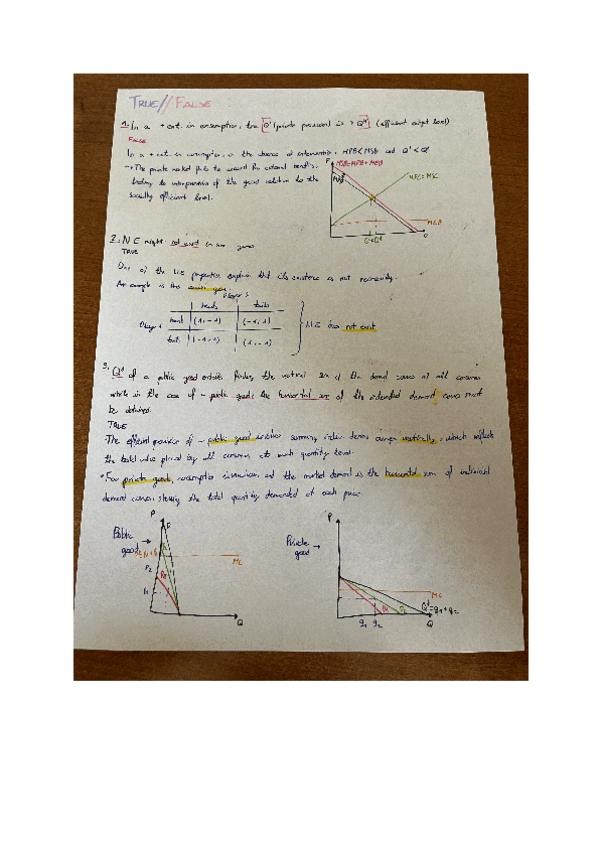 TRUE // FALSE :
1. In a + ext. in consumption, the Q' (private provision) is > Q* (efficient output level)
FALSE
In a + ext. in consumption, in the absence of intervention, MPB < MSB and Q' < Q*
→ The private market fails to the external benefits,
leading to of the good relative to the
socially efficient level.
P
MSB = MPB + MEB
MPB
MPC = MSC
MEB
Q' Q*
Q
2. NE might not exist in some games
TRUE
One of the N.E properties explain that its existence is not necessarily.
An example is the game
Player 2
heads tails
Player 1 head (1, -1) (-1, 1)
tails (-1, 1) (1, -1)
N.E does not exist
3. Q* of a public good entails finding the vertical sum of the demand curves of all consumers
while in the case of a public good, the horizontal sum of the demand curves must
be obtained.
TRUE
The efficient provision of a public good involves summing demand curves vertically, which reflects
the total value placed by all consumers at each quantity level.
• For private goods, consumption is and the market demand is the horizontal sum of individual
demand curves, showing the total quantity demanded at each price.
Public
good →
P
P2
P1
MC
Q
Private
good →
P
MC
q1 q2
Q* = q1 + q2
Q